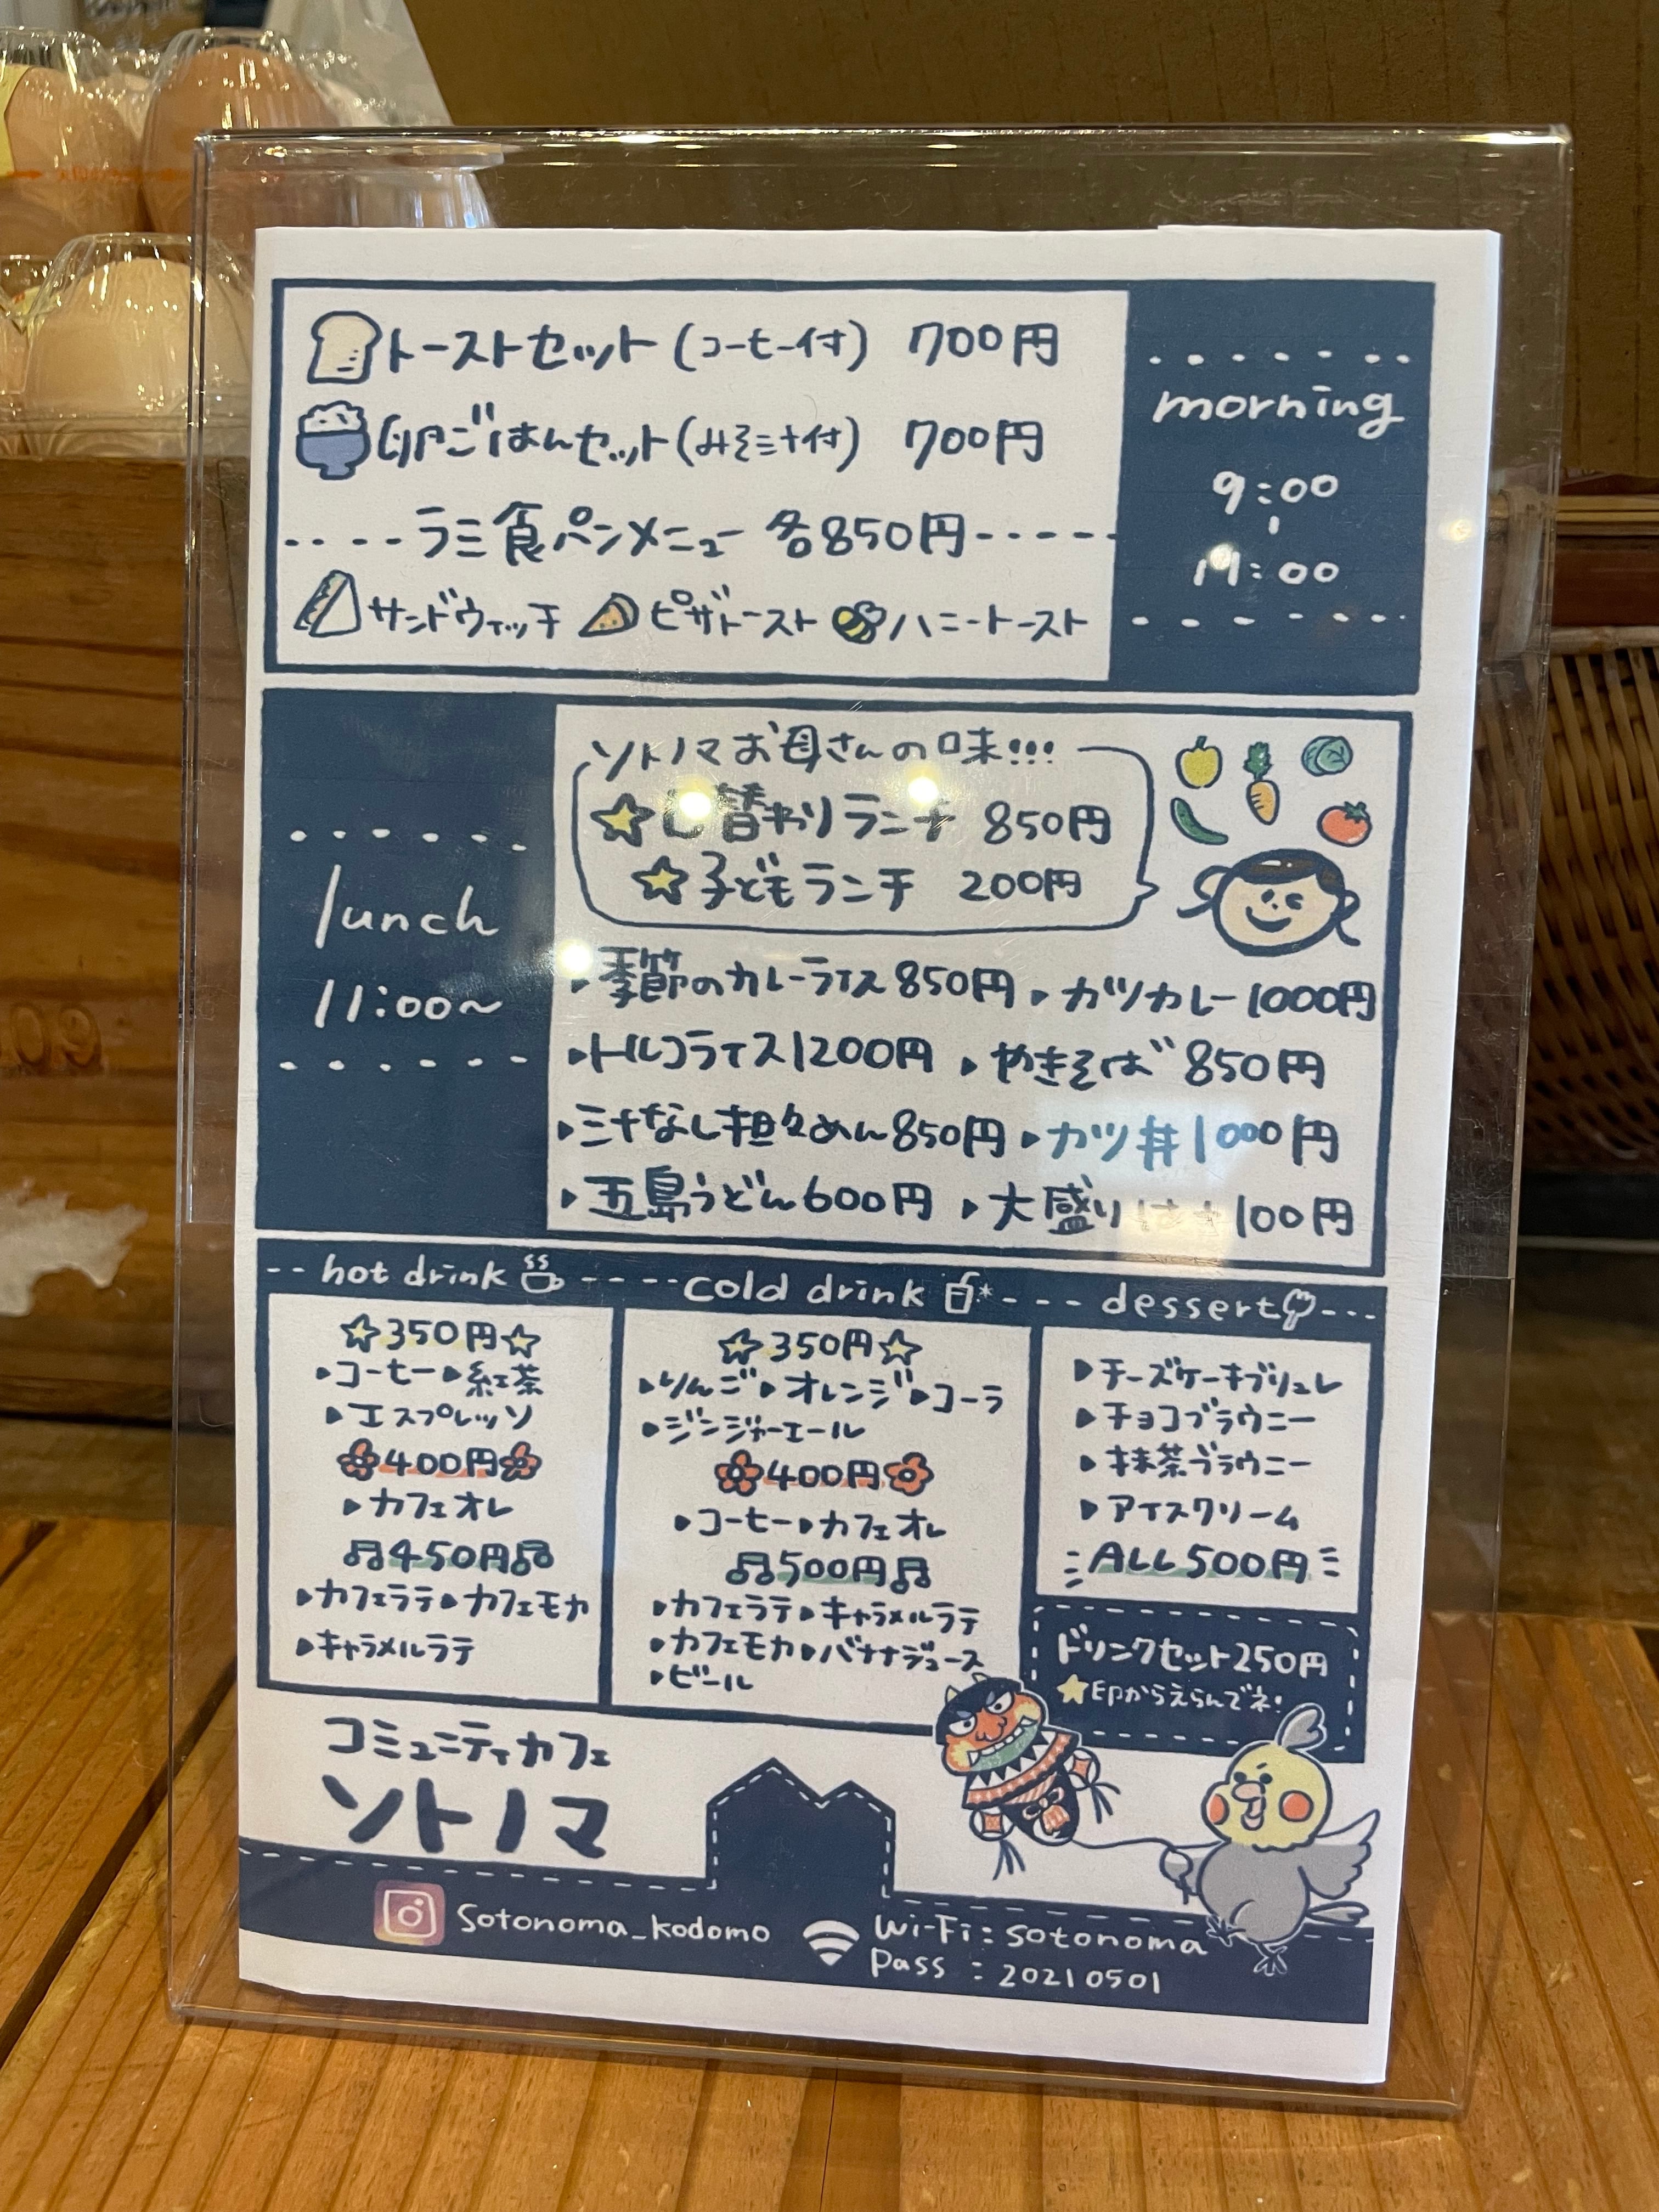 トーストセット(コーヒー付) 700円
卵ごはんセット(みそ汁付) 700円
ラミ食パンメニュー 各850円
サンドウィッチ ピザトースト ハニートースト
morning
9:00
11:00
lunch
11:00~
ソトノマお母さんの味!!!
日替わりランチ 850円
子どもランチ 200円
季節のカレーライス850円 カツカレー1000円
トルコライス1200円 やきそば850円
汁なし担々めん850円 カツ丼1000円
五島うどん600円 大盛りは+100円
hot drink
☆350円☆
コーヒー 紅茶
エスプレッソ
400円
カフェオレ
♫450円♫
カフェラテ カフェモカ
キャラメルラテ
cold drink
☆350円☆
りんご オレンジ コーラ
ジンジャーエール
400円
コーヒー カフェオレ
♫500円♫
カフェラテ キャラメルラテ
カフェモカ バナナジュース
ビール
dessert
チーズケーキブリュレ
チョコブラウニー
抹茶ブラウニー
アイスクリーム
ALL500円
ドリンクセット250円
★印からえらんでネ!
コミュニティカフェ
ソトノマ
Sotonoma_kodomo
Wi-Fi:sotonoma
Pass :20210501